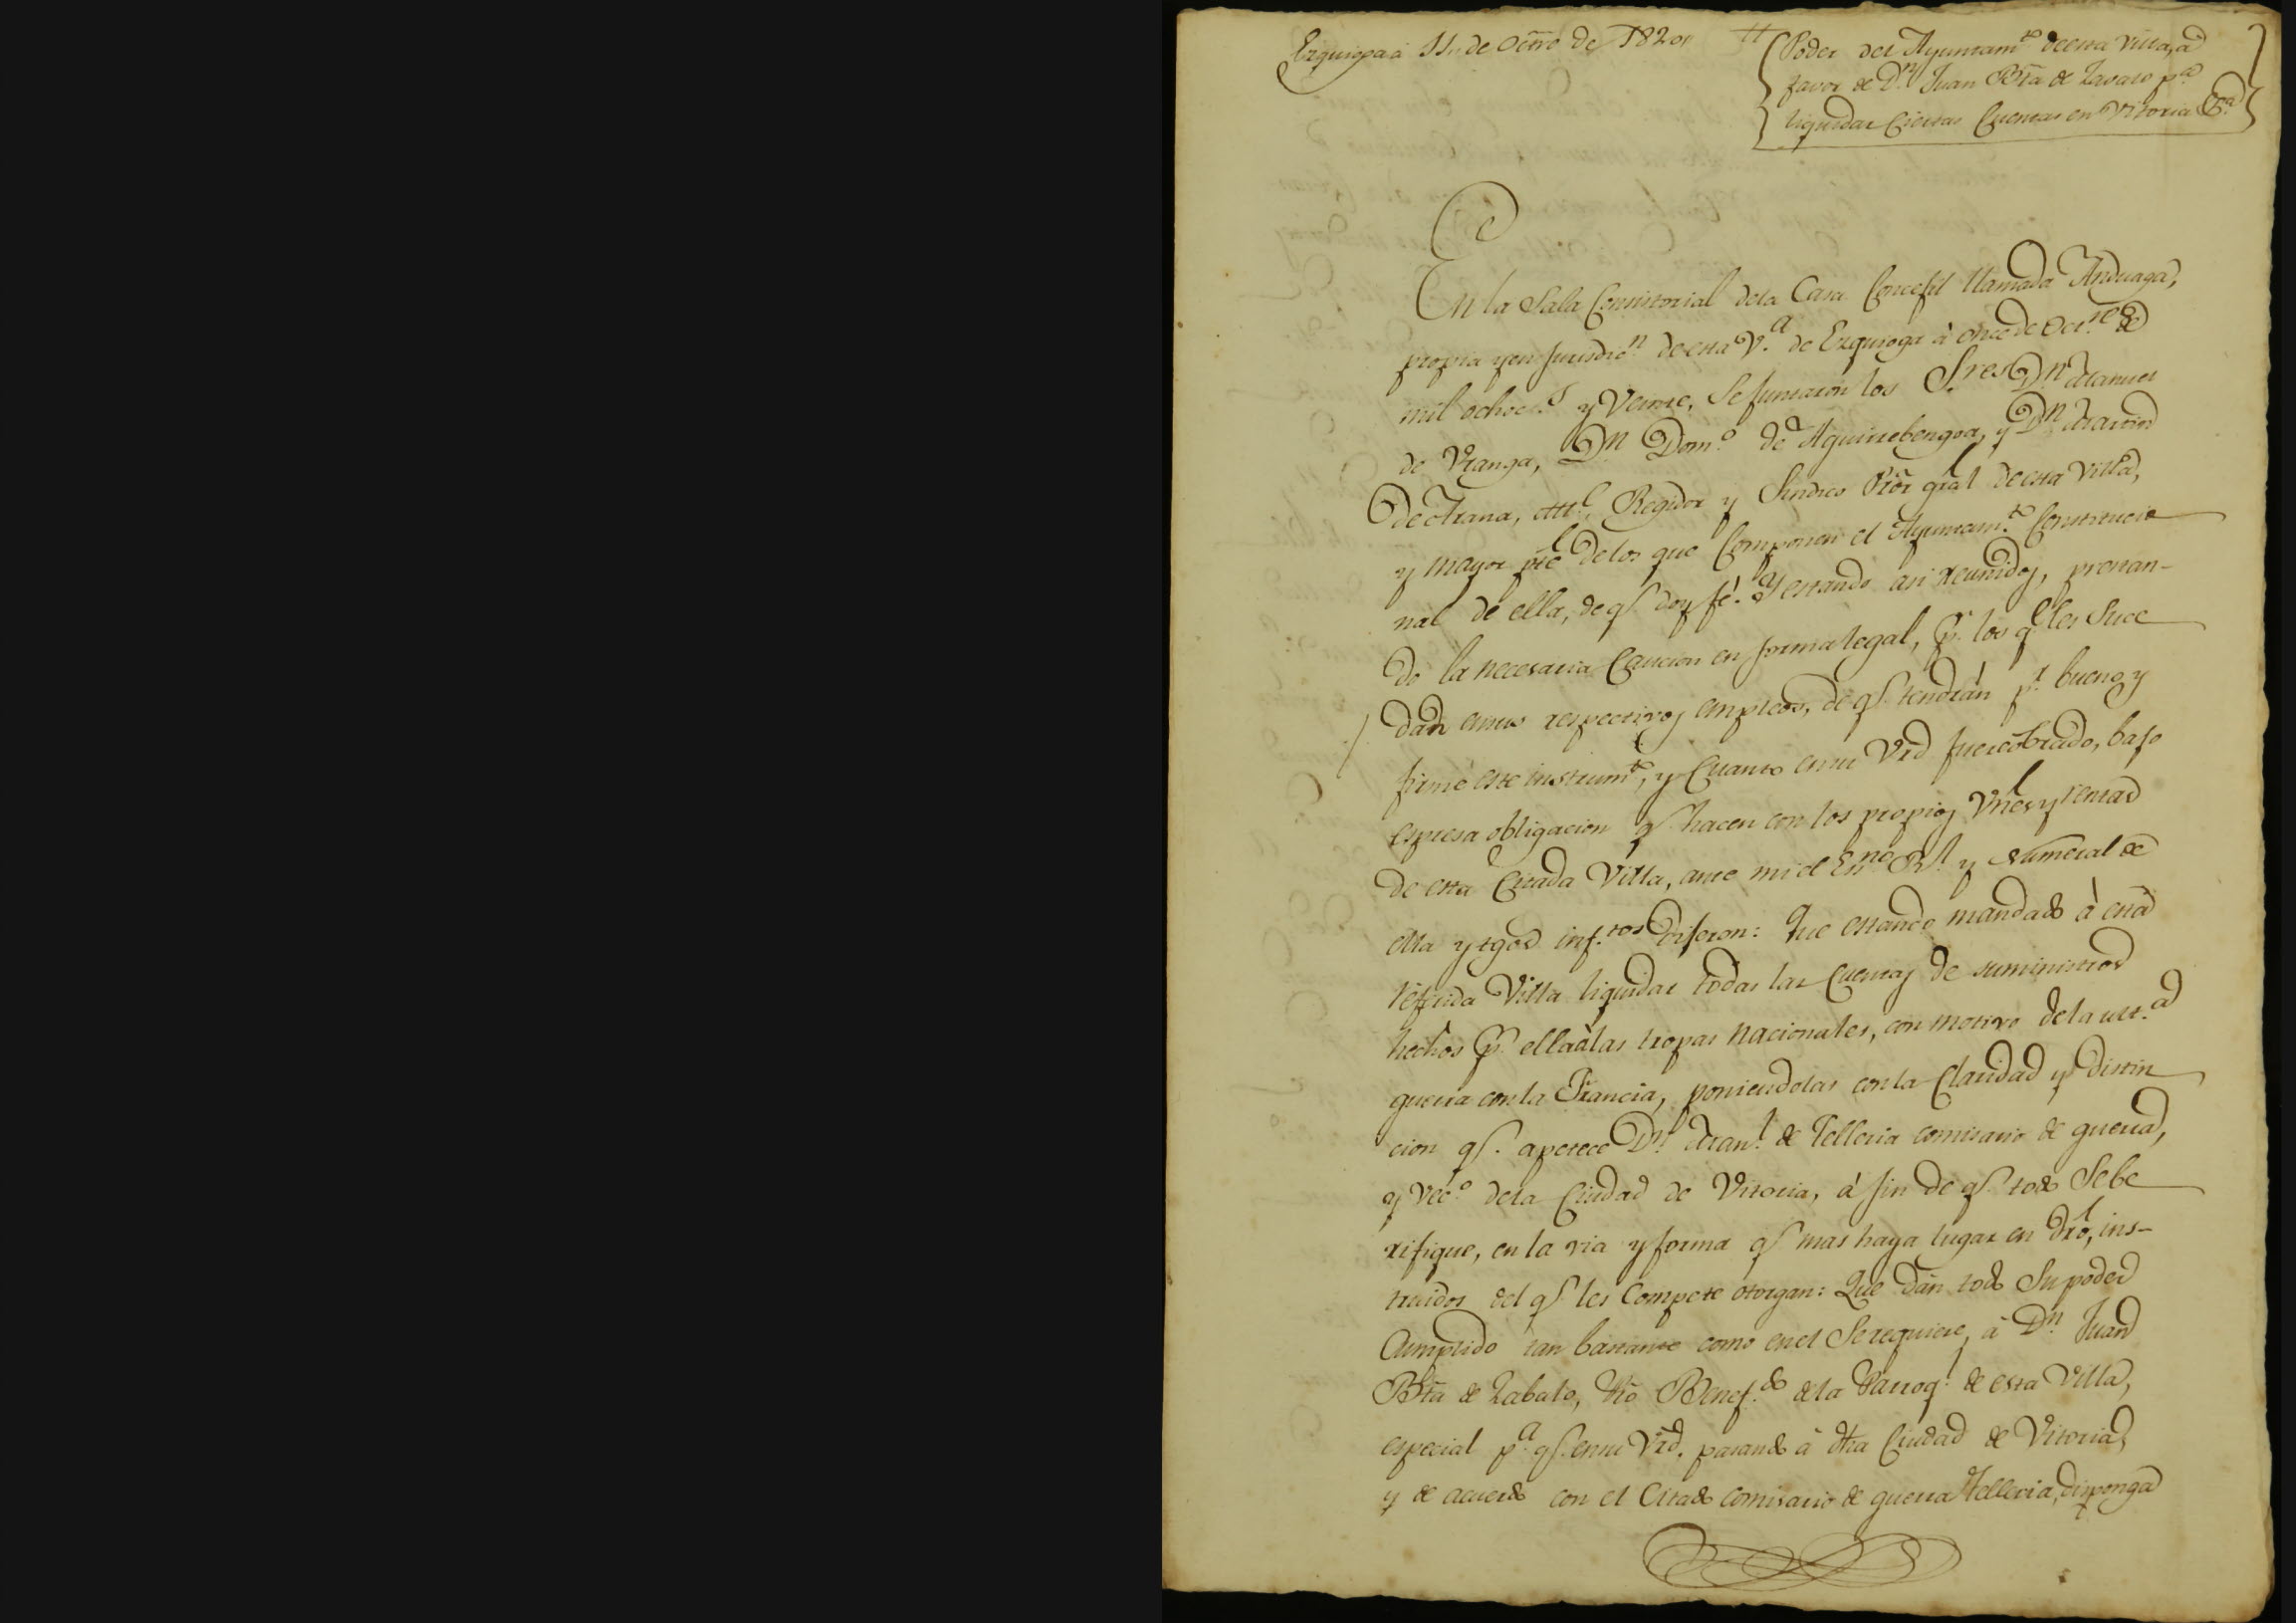 Ezquioga à 11,, de Octrē de 1820,,
Poder del Ayuntam.to de esta villa, a
favor de D.n Juan Bta de Zavalo p.a
liquidar Ciertas Cuentas en Vitoria
En la Sala Consistorial dela Casa Concejil llamada Anduaga,
propia y en Jurisdic.n de esta V.a de Ezquioga à once de Oct.re de
mil ochoc.s y Veinte, Se juntaron los S.res D.n Manuel
de Vranga, D.n Dom.o de Aguirrebengoa, y D.n Martin
de Arana, Regidor y Sindico Pror gral de esta Villa,
y mayor pte delos que Componen el Ayuntam.to Constitucio
nal de ella, de q.e doy fé. Y estando asi reunidos, prestan-
do la necesaria Caucion en forma legal, p.r los q.e les Suce
dan en sus respectivos empleos, de q.e tendrán p.r bueno y
firme este instrum.to, y Cuanto en su Vrd fuere obrado, bajo
espresa obligacion q.e hacen con los propios Vnes y rentas
de esta Citada Villa, ante mi el Es.no R.l y Numeral de
ella y tgos inf.tos Dijeron: Que estando mandado à esta
referida Villa liquidar todas las Cuentas de suministros
hechos p.r ella à las tropas Nacionales, con motivo dela ult.a
guerra con la Francia, poniendolas con la Claridad y distin
cion q.e apetece D.n Man.l de Telleria comisario de guerra,
y Vec.o dela Ciudad de Vitoria, à fin de q.e todo Se be
rifique, en la via y forma q.e mas haya lugar en dro, ins-
truidos del q.e les Compete otorgan: Que Dán todo Su poder
Cumplido tan bastante como en el Se requiere, à D.n Juan
Bta de Zabalo, Pro Benef.do dela Parroq.l de esta Villa,
especial p.a q.e en su Vrd. pasando à dha Ciudad de Vitoria,
y de acuerdo con el Citado comisario de guerra Telleria, disponga